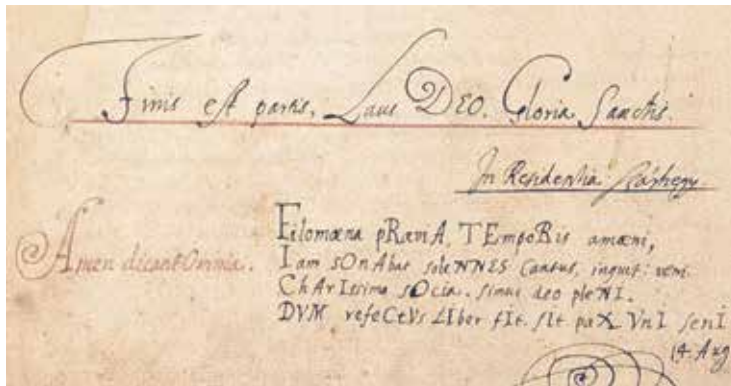 Finis est partis, Laus DEO. Gloria Sanctis.
In Residentia
Amen dicant Omnia.
Filomæna pRæviA, TEmpoRis amæni,
Iam sOnAbat soleNNES Cantus, inquit: veni.
ChArIssima sOcia. simus deo pleNI.
DVM refeCtVs LIber fIt. sIt paX VnI senI
14. Aug